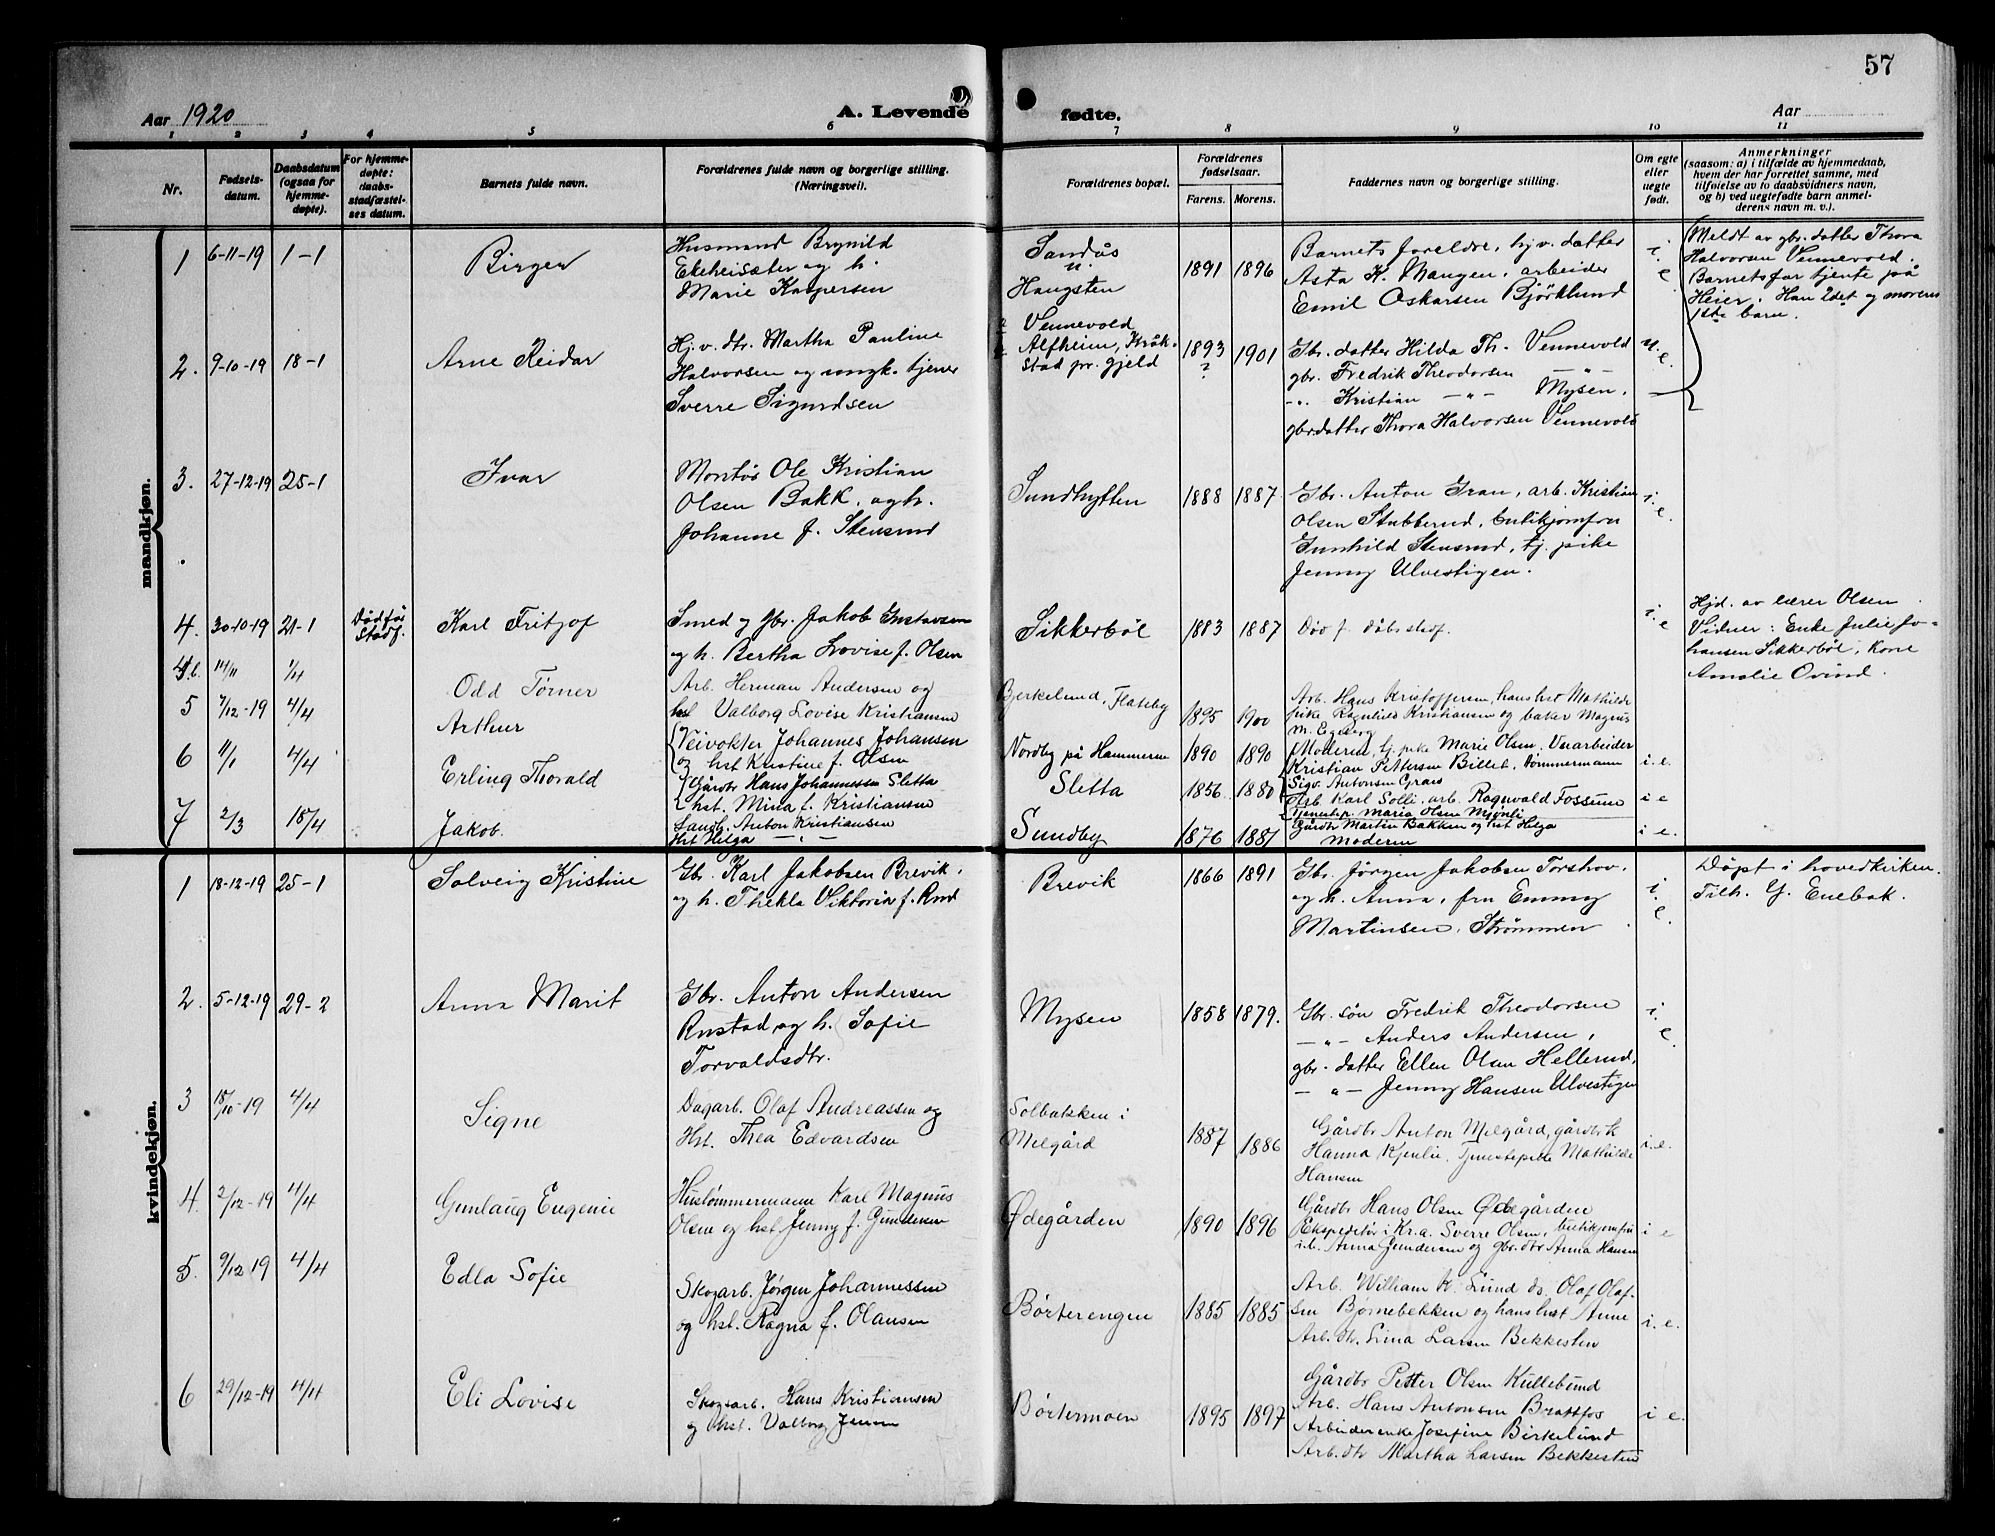 57
Aar 1920
A. Levende
fødte.
Aar
1 2 3 4 5 6 7 8 9 10 11
Nr.
Fødsels-
datum.
Daabsdatum
(ogsaa for
hjemme-
døpte).
For hjemme-
døpte:
daabs-
stadfæstel-
ses datum.
Barnets fulde navn.
Forældrenes fulde navn og borgerlige stilling.
(Næringsvei).
Forældrenes bopæl.
Forældrenes
fødselsaar.
Farens. Morens.
Faddernes navn og borgerlige stilling.
Om egte
eller
uegte
født.
Anmerkninger
(saasom: a) i tilfælde av hjemmedaab,
hvem der har forrettet samme, med
tilføielse av to daabsvidners navn,
og b) ved uegtefødte barn anmel-
derens navn m. v.).
mandkjøn.
1 6-11-19 1-1 Birger
Husmand Brynild
Ekeheisæter og h.
Marie Kaspersen
Sandås
u.
Haugsten
1891 1896
Barnets foreldre, hjv. datter
Asta K. Mangen, arbeider
Emil Oskarsen Björklund
i.
e
Meldt av gbr. datter Thora
Halvorsen Vennevold.
Barnets far tjente på
Heier. Han 2det og morens
1ste barn.
2. 9-10-19 18-1 Arne Reidar
Hj.v. dtr. Martha Pauline
Halvorsen og ungk. tjener
Sverre Sigurdsen
Vennevold
Alfheim, Kråk-
stad pr.gjeld
1893 ? 1901
Gbr. datter Hilda Th. Vennevold
gbr. Fredrik Theodorsen — " —
-"- Kristian -"- Mysen,
gbr.datter Thora Halvorsen Vennevold
u.
e.
3. 27-12-19 25-1 Ivar
Montör Ole Kristian
Olsen Bakk, og h.
Johanne f. Stensrud
Sundhytten
1888 1887
Gbr. Anton Gran, arb. Kristian
Olsen Stubberud, butikjomfru
Gunhild Stensrud, tj. pike
Jenny Ulvestigen.
i.
e.
4. 30-10-19 21-1 Död för
Stadf.
Karl Fritjof
Smed og Gbr. Jakob Gustavsen
og h. Bertha Lovise f. Olsen
Sikkerböl
1883 1887
Död f. dåbsstadf.
i.
e
Hjd. av lærer Olsen
Vidner: Enke Julie Jo-
hansen Sikkerböl, Kone
Amalie Ovind.
4b. 14/11 1/4 Odd Tørner
Arb. Herman Andersen og
hst Valborg Lovise Kristiansen
Bjerkelund, Flateby
1895 1900
Arb. Hans Kristoffersen, hans hst Mathilde
pike Ragnhild Kristiansen og baker Magnus
M. Egeberg
5 7/12-19 4/4 Arthur
Veivokter Johannes Johansen
og hst Kristine f. Olsen
Nordby på Hammeren
1890 1890
Moderen, tj. pike Marie Olsen, Verarbeider
Kristian Pettersen Billet, Tømmermann
Sigv. Antonsen Graas
i. e.
6 1/1 4/4 Erling Thorald
Gårdbr Hans Johannessen Sletta
hst. Mina f. Kristiansen
Sletta
1856 1880
Arb. Karl Solli, arb. Ragnvald Fossum
Tjenestep. Maria Olsen
i e
7 2/3 18/4 Jakob.
Landb. Anton Kristiansen
Hst Helga — " —
Sundby
1876 1881
Gårdbr Martin Bakken og hst Helga
Moderen
i e.
kvindekjøn.
1 18-12-19 25-1 Solveig Kristine
Gbr. Karl Jakobsen Brevik.
og h. Thekla Viktoria f. Rud
Brevik
1866 1891
Gbr. Jörgen Jakobsen Torshov.
og h. Anna, fru Emmy
Martinsen, Strömmen
i.
e.
Döpt i hovedkirken.
Tilh. Y. Enebak.
2. 5-12-19 29-2 Anna Marit
Gbr. Anton Andersen
Rustad og h. Sofie
Torvaldsdtr.
Mysen
1858 1879.
Gbr. sön Fredrik Theodorsen
— " — Anders Andersen,
gbr. datter Ellen Olsen Hellerud,
— " — Jenny Hansen Ulvestigen
i.
e.
3 18/10-19 4/4 Signe
Dagarb. Olaf Andreassen og
Hst. Thea Edvardsen
Solbakken i
Melgård
1887 1886
Gårdbr Anton Melgård, gårdbrk
Hanna Kjenlie, Tjenestepike Mathilde
Hansen
i. e.
4. 2/12-19 4/4 Gunlaug Eugenie
Hustømmermann Karl Magnus
Olsen og hst. Jenny f. Gundersen
Ødegården
1890 1896
Gårdbr Hans Olsen Ødegården
Ekspeditør i Kr.a. Sverre Olsen, butikjomfru
i.b. Anna Gundersen og gbr. dtr Anna Hansen
i e
5. 9/12 19 4/4 Edla Sofie
Skogarb. Jørgen Johannessen
og hst. Ragna f. Olausen
Børterengen
1885 1885
Arb. William K. Lund ds, Olaf Olaf-
sen Bjørnebekken og hans hst Anne
Arb. dtr. Lina Larsen Bekkesten
i. e.
6 29/12-19 4/4 Eli Lovise
Skogsarb. Hans Kristiansen
og hst. Valborg Jensen
Børtermoen
1895 1897
Gårdbr Petter Olsen Kullebund
Arb. Hans Antonsen Brattfos
Arbeiderenke Josefine Birkelund
Arb. dtr Martha Larsen Bekkesten
i e.